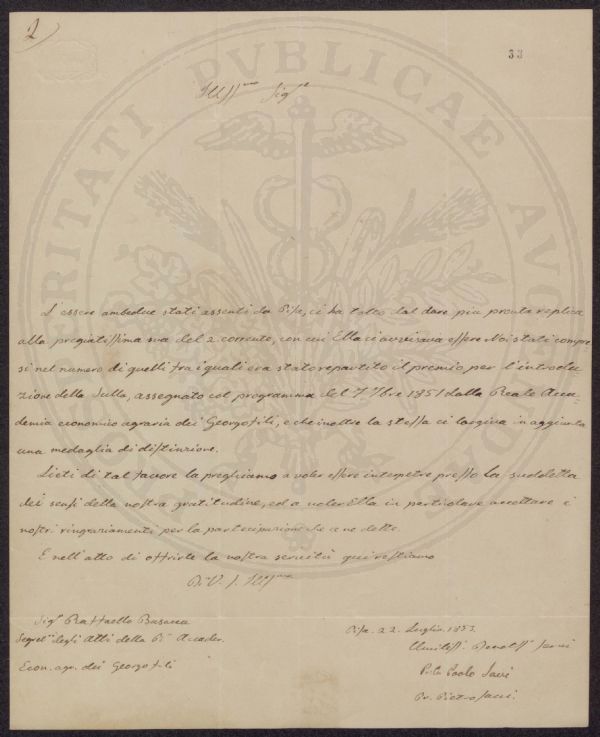 2
33
Ill^mo Sig^re
L'essere ambedue stati assenti da Pisa, ci ha tolto dal dare più pronta replica
alla pregiatissima sua del 2. corrente, con cui Ella ci avvisava essere Noi stati compre=
si nel numero di quelli tra i quali era stato repartito il premio per l'introdu=
zione della Sulla, assegnato col programma del 7 7bre 1851 dalla Reale Acca=
demia economico agraria dei Georgofili, e che inoltre la stessa ci largiva in aggiunta
una medaglia di distinzione.
Lieti di tal favore la preghiamo a voler essere interpetre presso la suddetta
dei sensi della nostra gratitudine, ed a voler Ella in particolare accettare i
nostri ringraziamenti per la partecipazione che ce ne dette.
E nell'atto di offrirle la nostra servitù qui restiamo
Di V. S. Ill^ma
Sig^r Raffaello Busacca
Segret^o degli Atti della R^e Accade.
Econ. agr. dei Georgofili
Pisa. 22. Luglio. 1853.
Umilissi. Devotss^i Servi
Paolo Savi
Pr. Pietro Savi.
PROSPERITATI PVBLICAE AVGENDAE